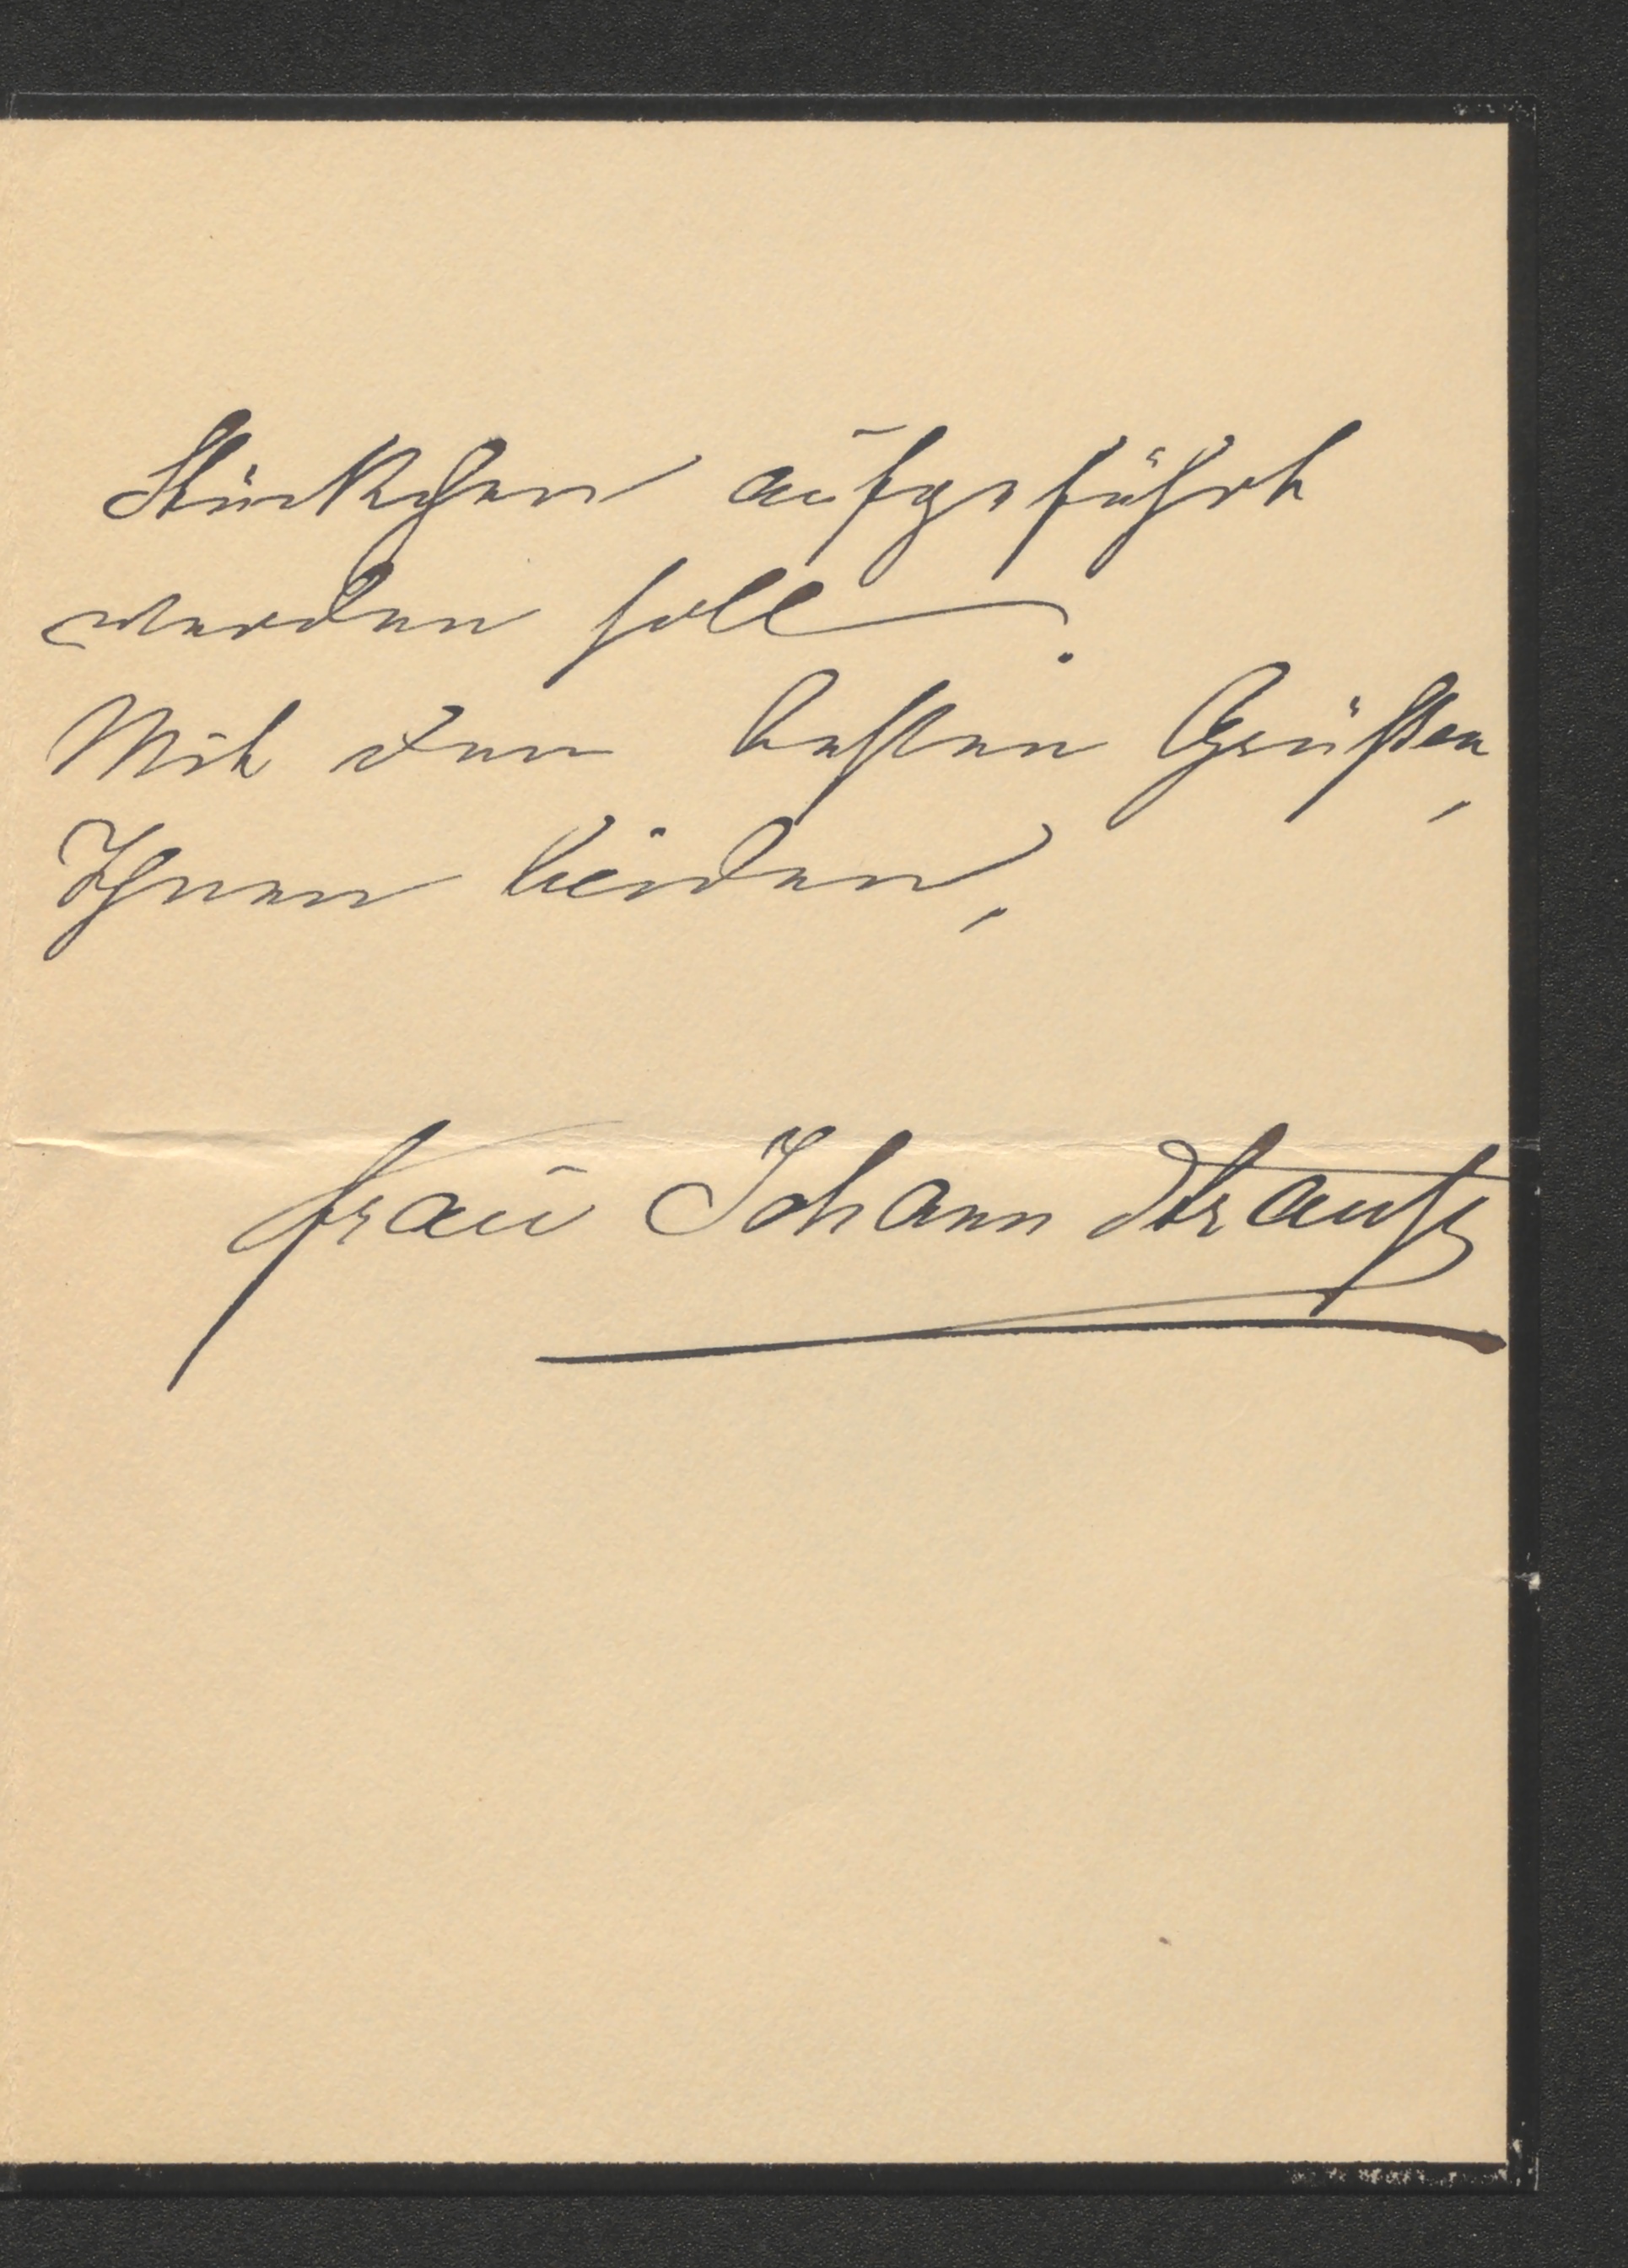 Stückchen aufgeführt
werden soll.
Mit den besten Grüßen,
Ihnen beiden,
Frau Johann Strauß